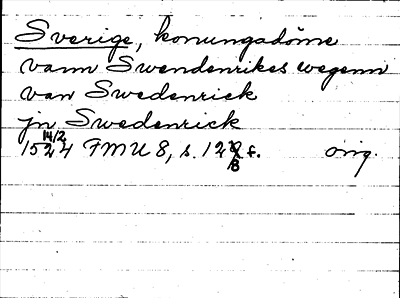 Sverige, konungadöme
vann Swendenrikes wegenn
van Swedenriek
jn Swedenrick
14/2
1524 FMU 8, s. 128 f. orig.